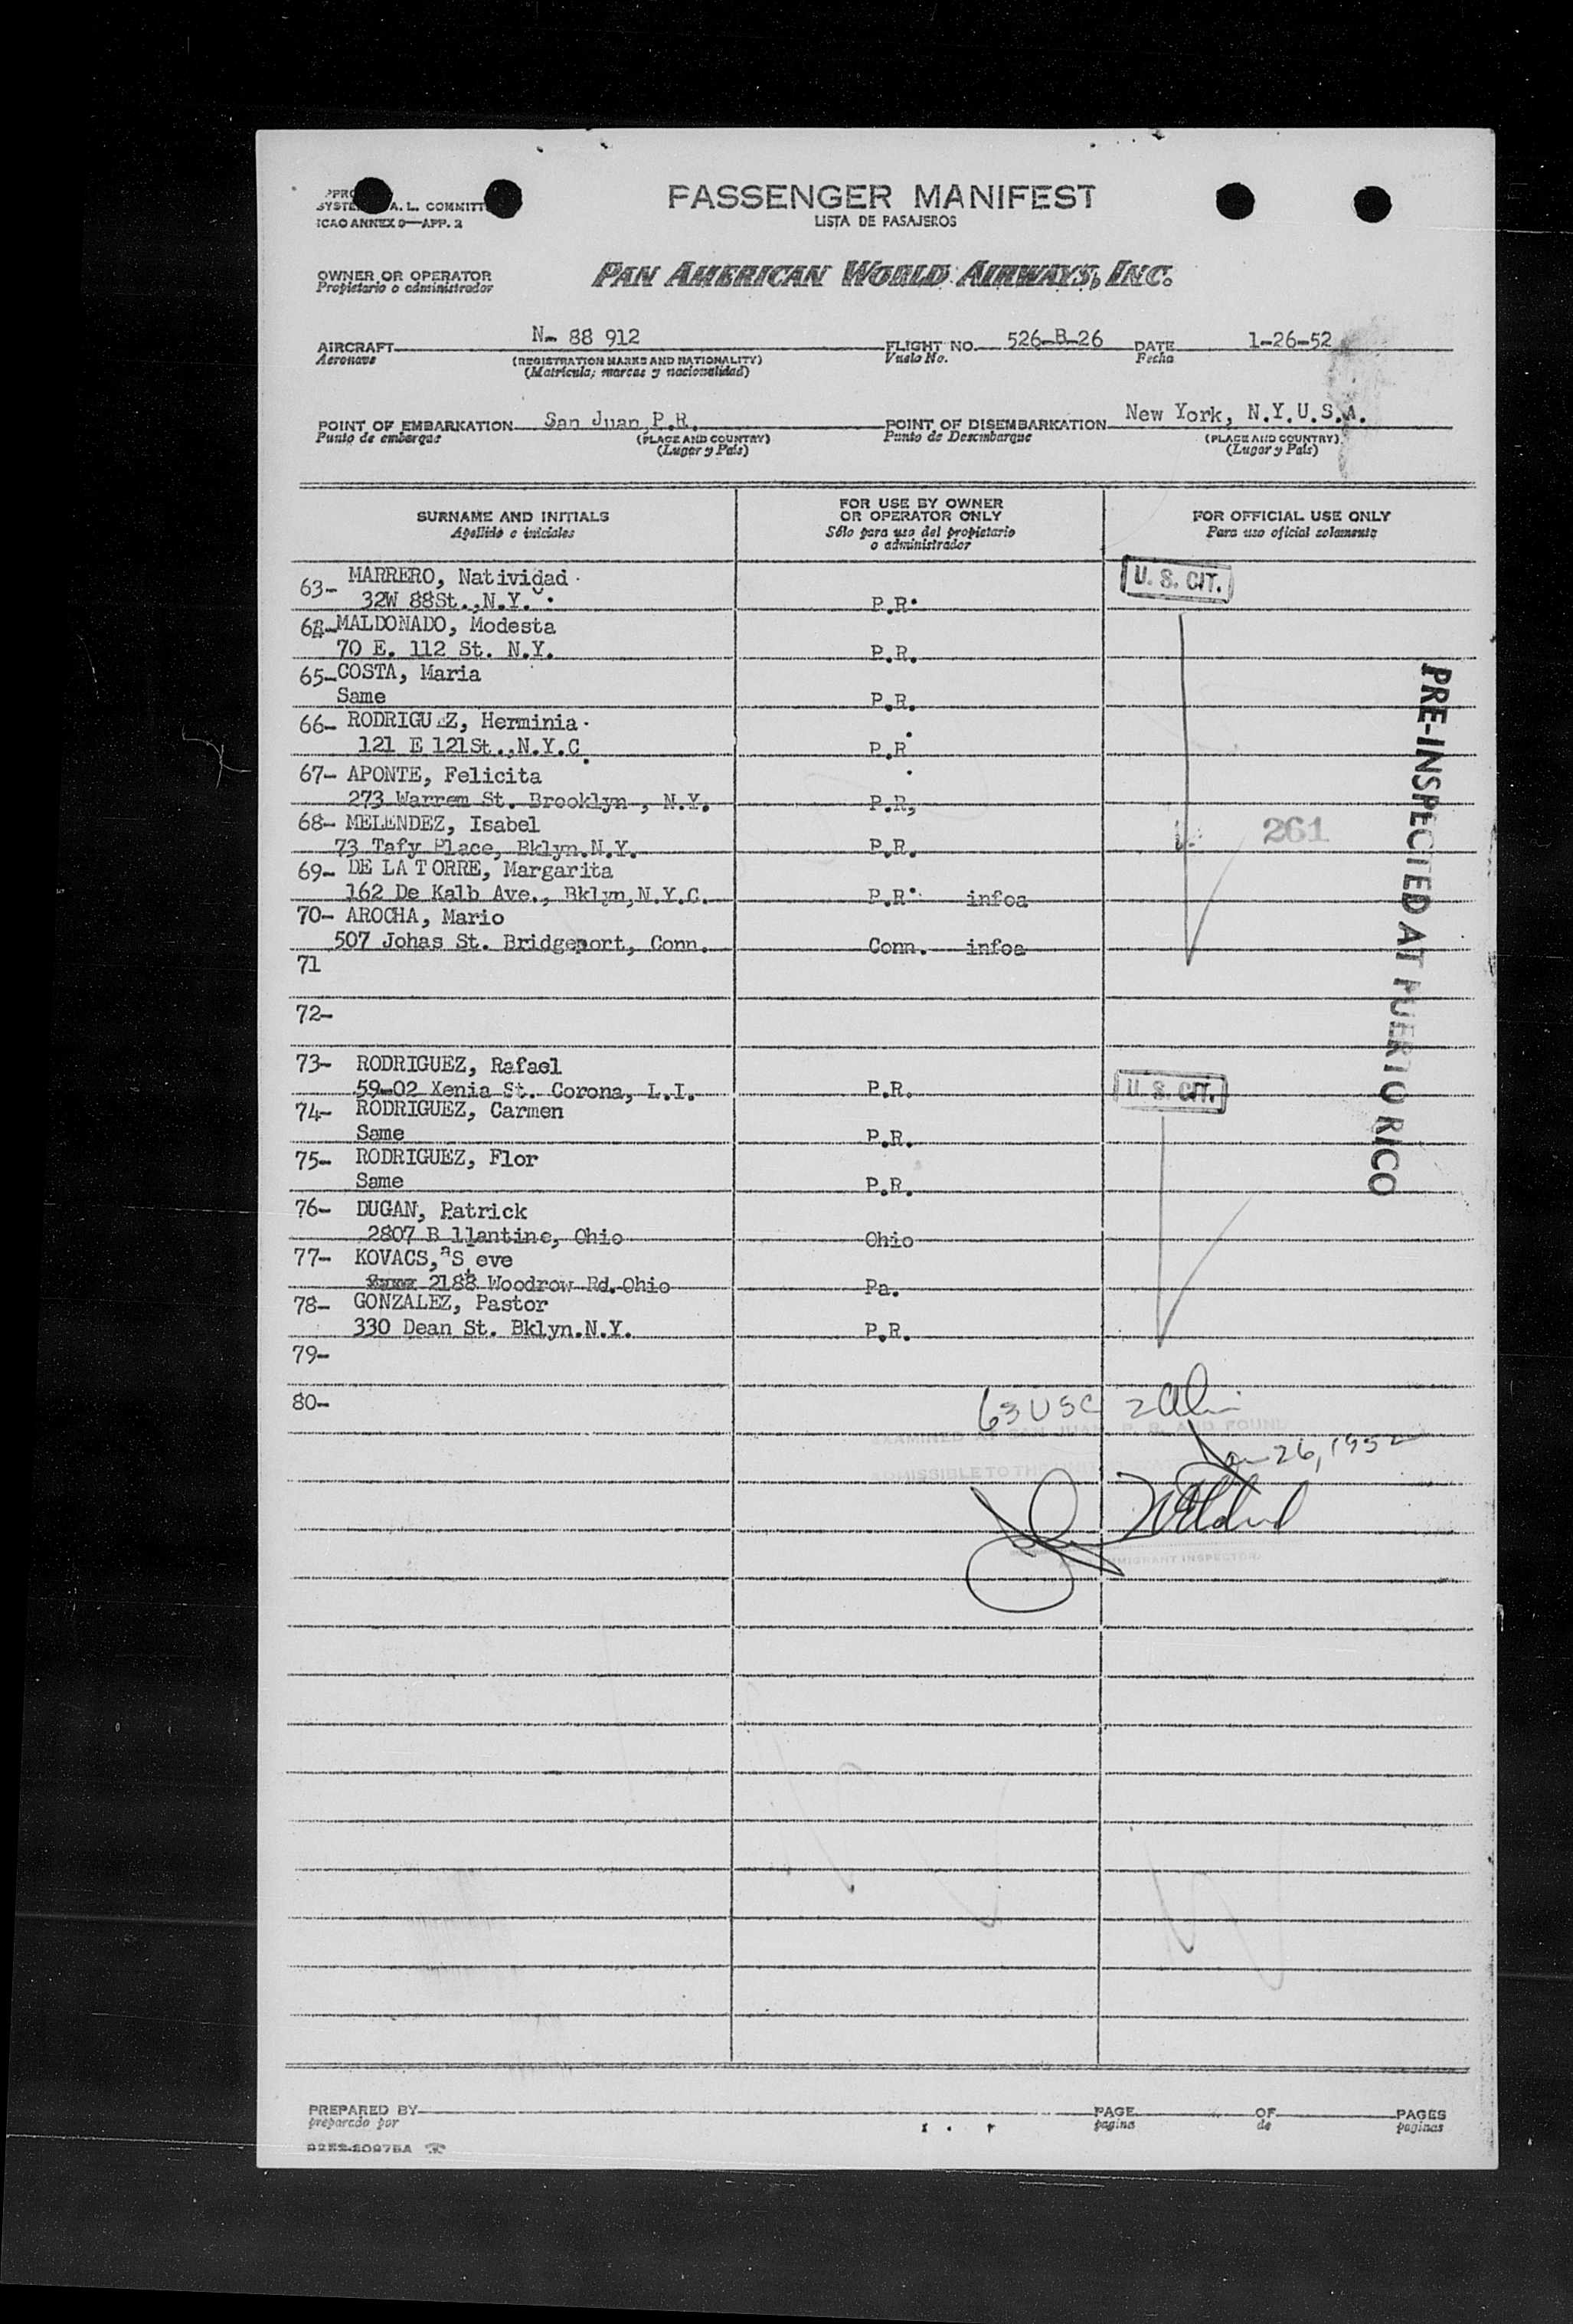 SYSTE A. L. COMMITT
ICAO ANNEX 9—APP. 2
PASSENGER MANIFEST
LISTA DE PASAJEROS
OWNER OR OPERATOR
Propietario o administrador
PAN AMERICAN WORLD AIRWAYS, INC.
AIRCRAFT N- 88 912 FLIGHT NO. 526-B-26 DATE 1-26-52
Aeronave (REGISTRATION MARKS AND NATIONALITY) Vuelo No. Fecha
(Matrícula; marcas y nacionalidad)
POINT OF EMBARKATION San Juan,P.R. POINT OF DISEMBARKATION New York, N.Y.U.S.A.
Punto de embarque (PLACE AND COUNTRY) Punto de Desembarque (PLACE AND COUNTRY)
(Lugar y País) (Lugar y País)
SURNAME AND INITIALS
Apellido e iniciales
FOR USE BY OWNER
OR OPERATOR ONLY
Sólo para uso del propietario
o administrador
FOR OFFICIAL USE ONLY
Para uso oficial solamente
63- MARRERO, Natividad
32W 88St.,N.Y. P.R. U. S. CIT.
64-MALDONADO, Modesta
70 E. 112 St. N.Y. P.R.
65-COSTA, Maria
Same P.R.
66- RODRIGU Z, Herminia
121 E 121St.,N.Y.C. P.R.
67- APONTE, Felicita
273 Warrem St. Brooklyn , N.Y. P.R,
68- MELENDEZ, Isabel
73 Tafy Place, Bklyn.N.Y. P.R. 261
69- DE LA TORRE, Margarita
162 De Kalb Ave., Bklyn,N.Y.C. P.R. infoa
70- AROCHA, Mario
507 Johas St. Bridgeport, Conn. Conn. infoa
71
72-
73- RODRIGUEZ, Rafael
59-02 Xenia St. Corona, L.I. P.R. U. S. CIT.
74- RODRIGUEZ, Carmen
Same P.R.
75- RODRIGUEZ, Flor
Same P.R.
76- DUGAN, Patrick
2807 B llantine, Ohio Ohio
77- KOVACS, Steve
2188 Woodrow Rd.Ohio Pa.
78- GONZALEZ, Pastor
330 Dean St. Bklyn.N.Y. P.R.
79-
80-
PRE-INSPECTED AT PUERTO RICO
63 USC 2 Ali
EXAMINED AT SAN JUAN, P. R. AND FOUND
Jan 26, 1952
ADMISSIBLE TO THE
IMMIGRANT INSPECTOR
PREPARED BY PAGE OF PAGES
preparado por pagina de paginas